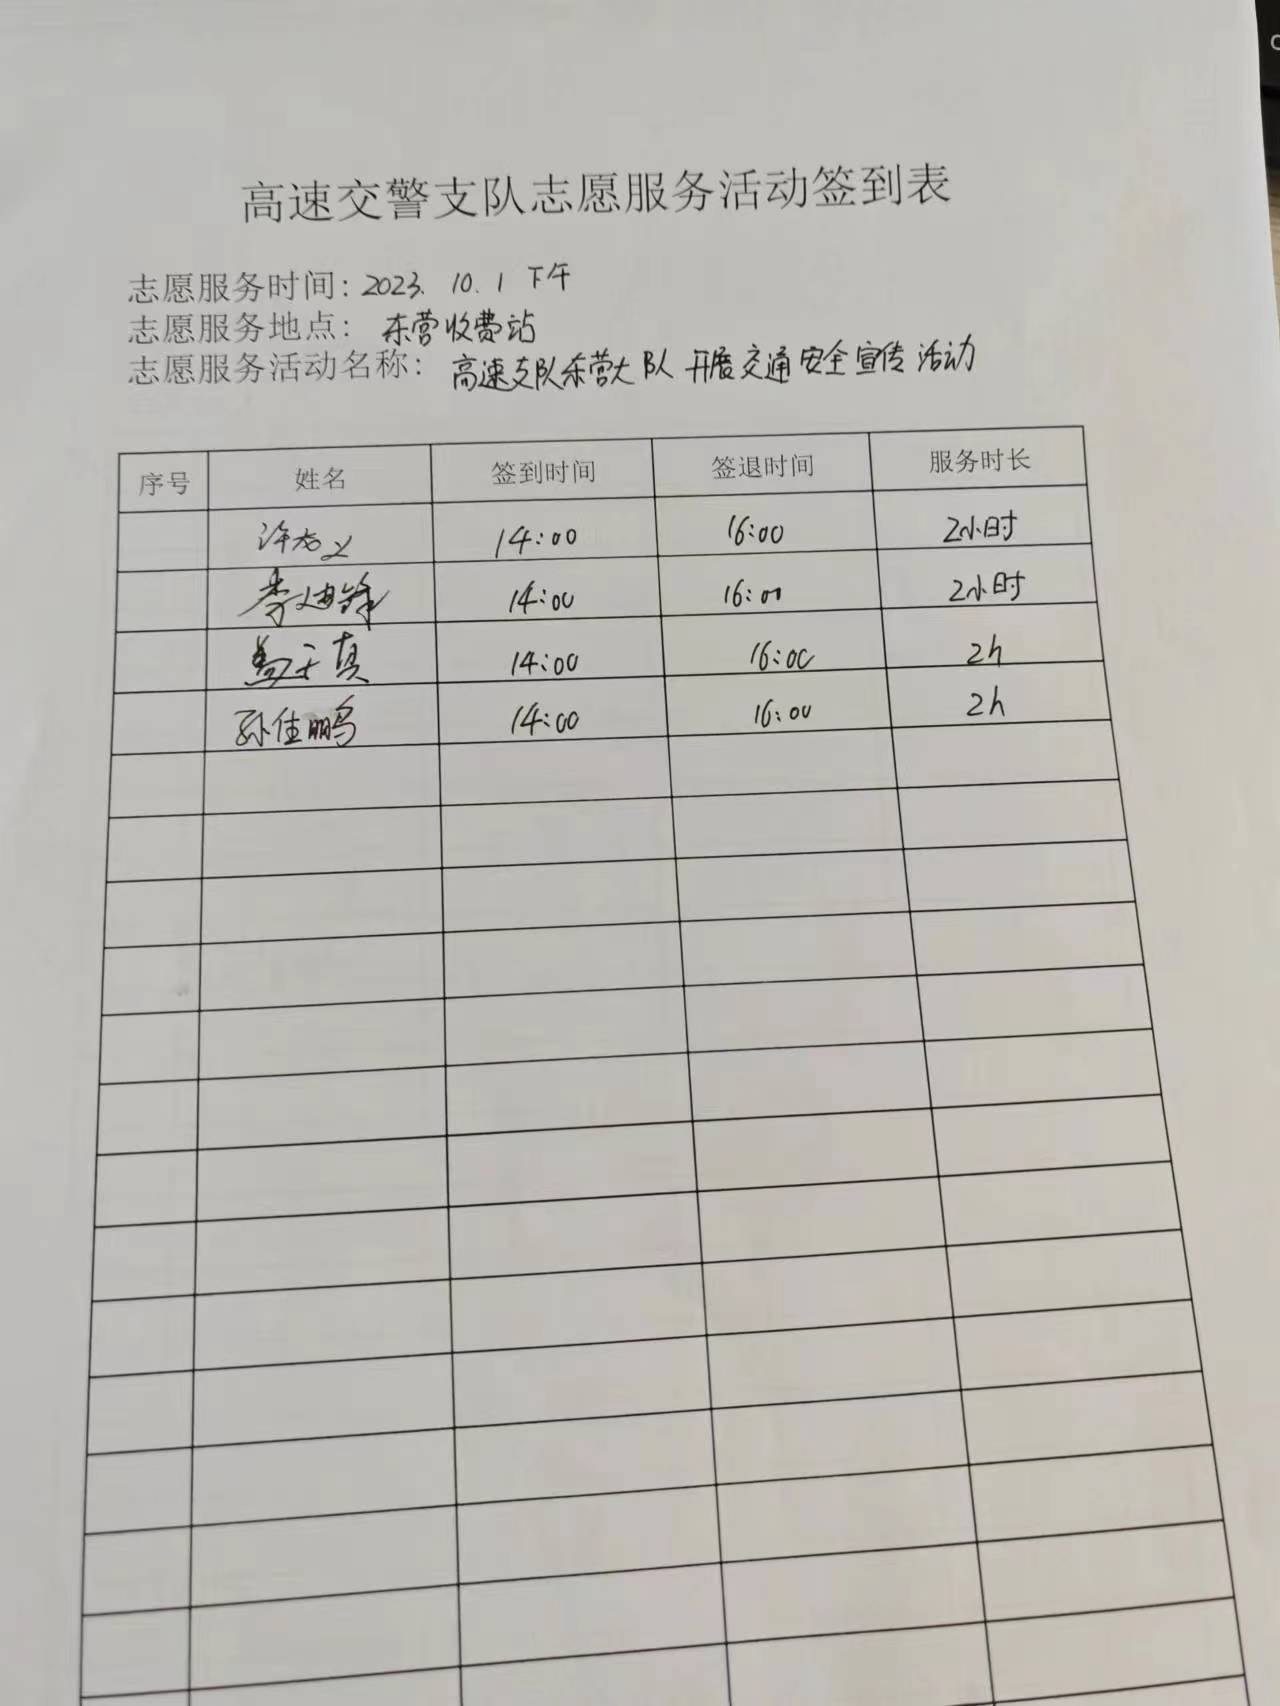 高速交警支队志愿服务活动签到表
志愿服务时间：2023.10.1下午
志愿服务地点：东营收费站
志愿服务活动名称：高速支队东营大队开展交通安全宣传活动
序号 姓名 签到时间 签退时间 服务时长
14:00 16:00 2小时
李 14:00 16:00 2小时
14:00 16:00 2h
孙佳鹏 14:00 16:00 2h